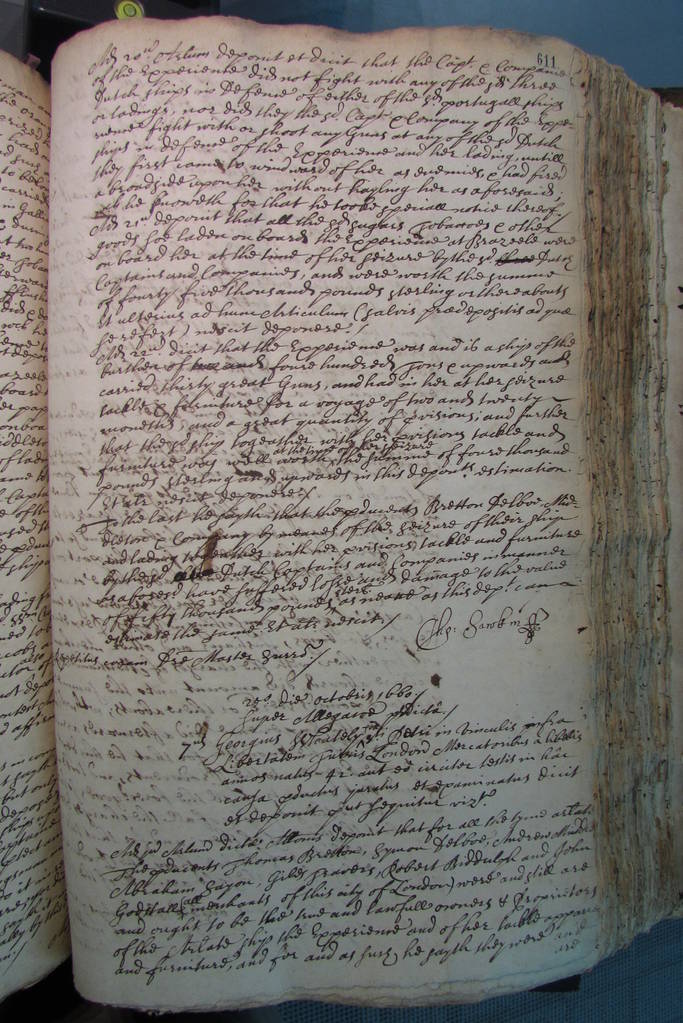 611
Ad 20um Artlum deponit et dicit that the Capt. & Companie
of the Experience did not fight with any of the sd three
Dutch ships in defense of either of the sd portugall ships
or ladings, nor did they the sd Capt. & Company of the Expe-
rience fight with or shoot any Guns at any of the sd Dutch
ships in defense of the Experience and her lading untill
they first came to windward of her as enemies, & had fired
a broadside upon her without hayling her as aforesaid;
he knoweth for that he tooke speciall notice thereof./
Ad 21um deponit that all the sd sugars Tobaccoes & other
goods soe laden on board the Experience at Brazeele were
on board her at the time of her seizure by the sd Dutch
Captains and Companies, and were worth the summe
of fourty five thousand pounds sterling or thereabouts
et ulterius ad hunc Articulum (salvis prædepositis ad quæ
se refert) nescit deponere./
Ad 22um dicit that the Experience was and is a ship of the
burthen of foure hundred Tons & upwards and
carried thirty great Guns, and had in her at her seizure
tackle & furniture for a voyage of two and twenty
moneths, and a great quantity of pvisions; and further
that the sd ship togeather with her pvisions tackle and
at the tyme of her seizure
furniture was well worth the summe of foure thousand
pounds sterling and upwards in this deponts estimation.
Et aliter nescit deponere./
To the last he sayth that the pducents Bretton Delboe Mid-
dleton & Company by meanes of the seizure of their ship
and lading togeather with her pvisions, tackle and furniture
by the sd Dutch Captains and Companies in manner
as aforesd have suffered losse and damage to the value
of fifty thousand pounds sterl. as neare as this dept. can
estimate the same. Et aliter nescit./
Tho: Hawkins
Repetitus coram Dre Master Surro./
20o die Octobris 1660./
Super Allegaone pdicta./
7us Georgius Whateley Petri in Vinculis infra
Libertatem Turris London Mercatoribus a libellis
annos natus 42 aut eo circiter testis in hac
causa pductus juratus et examinatus dicit
et deponit put sequitur vizt.
Ad Artlum dictæ Allonis deponit that for all the tyme arlate
The pducents Thomas Bretton, Symon Delboe, Andrew
Abraham Sayon, Giles Travers, Robert Biddulph and John
Godstall (all merchants of this city of London) were and still are
and ought to be the true and lawfull owners & Proprietors
of the Arlate ship the Experience and of her tackle apparrell
and furniture, and for and as such he sayth they were and
are